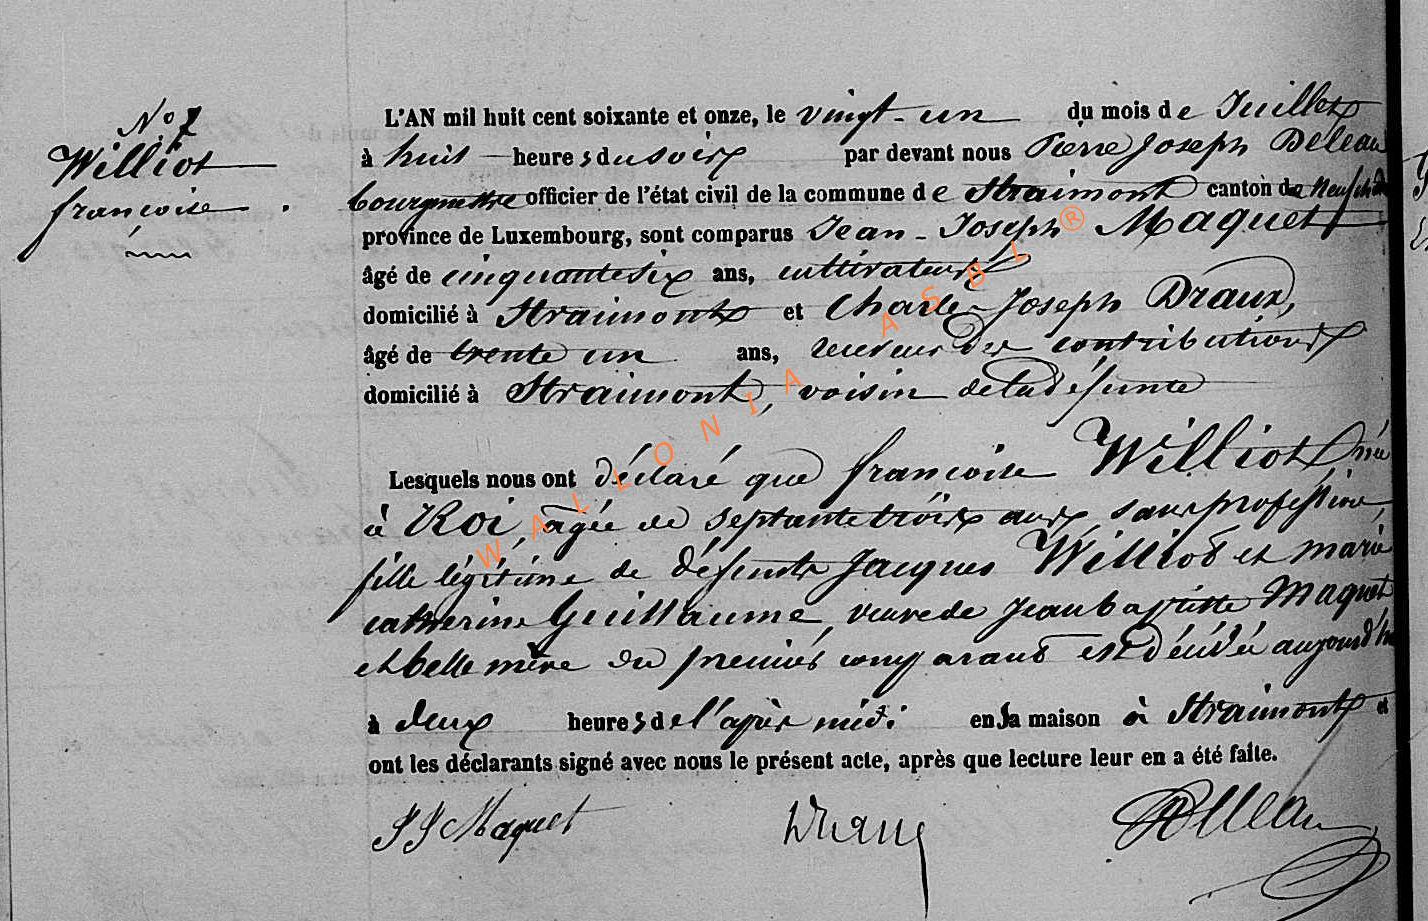 N° 7
Williot
françoise
L'AN mil huit cent soixante et onze, le vingt-un du mois de Juillet
à huit heures du soir par devant nous Pierre Joseph Deleau
bourgmestre officier de l'état civil de la commune de Straimont canton de
province de Luxembourg, sont comparus Jean-Joseph Maquet
âgé de cinquante six ans, cultivateur
domicilié à Straimont et Charle-Joseph Draux,
âgé de trente un ans, receveur des contributions
domicilié à Straimont, voisin de la défunte
Lesquels nous ont déclaré que françoise Williot née
à Roi, agée de septante trois ans, sans profession,
fille légitime de défunts Jacques Williot et marie
catherine Guillaume, veuve de Jean baptiste Maquet
et belle mère du premier comparant est décédée aujourd'hui
à deux heures de l'après midi en sa maison à Straimont et
ont les déclarants signé avec nous le présent acte, après que lecture leur en a été faite.
JJ Maquet Draux Deleau
WALLONIA ASBL ®